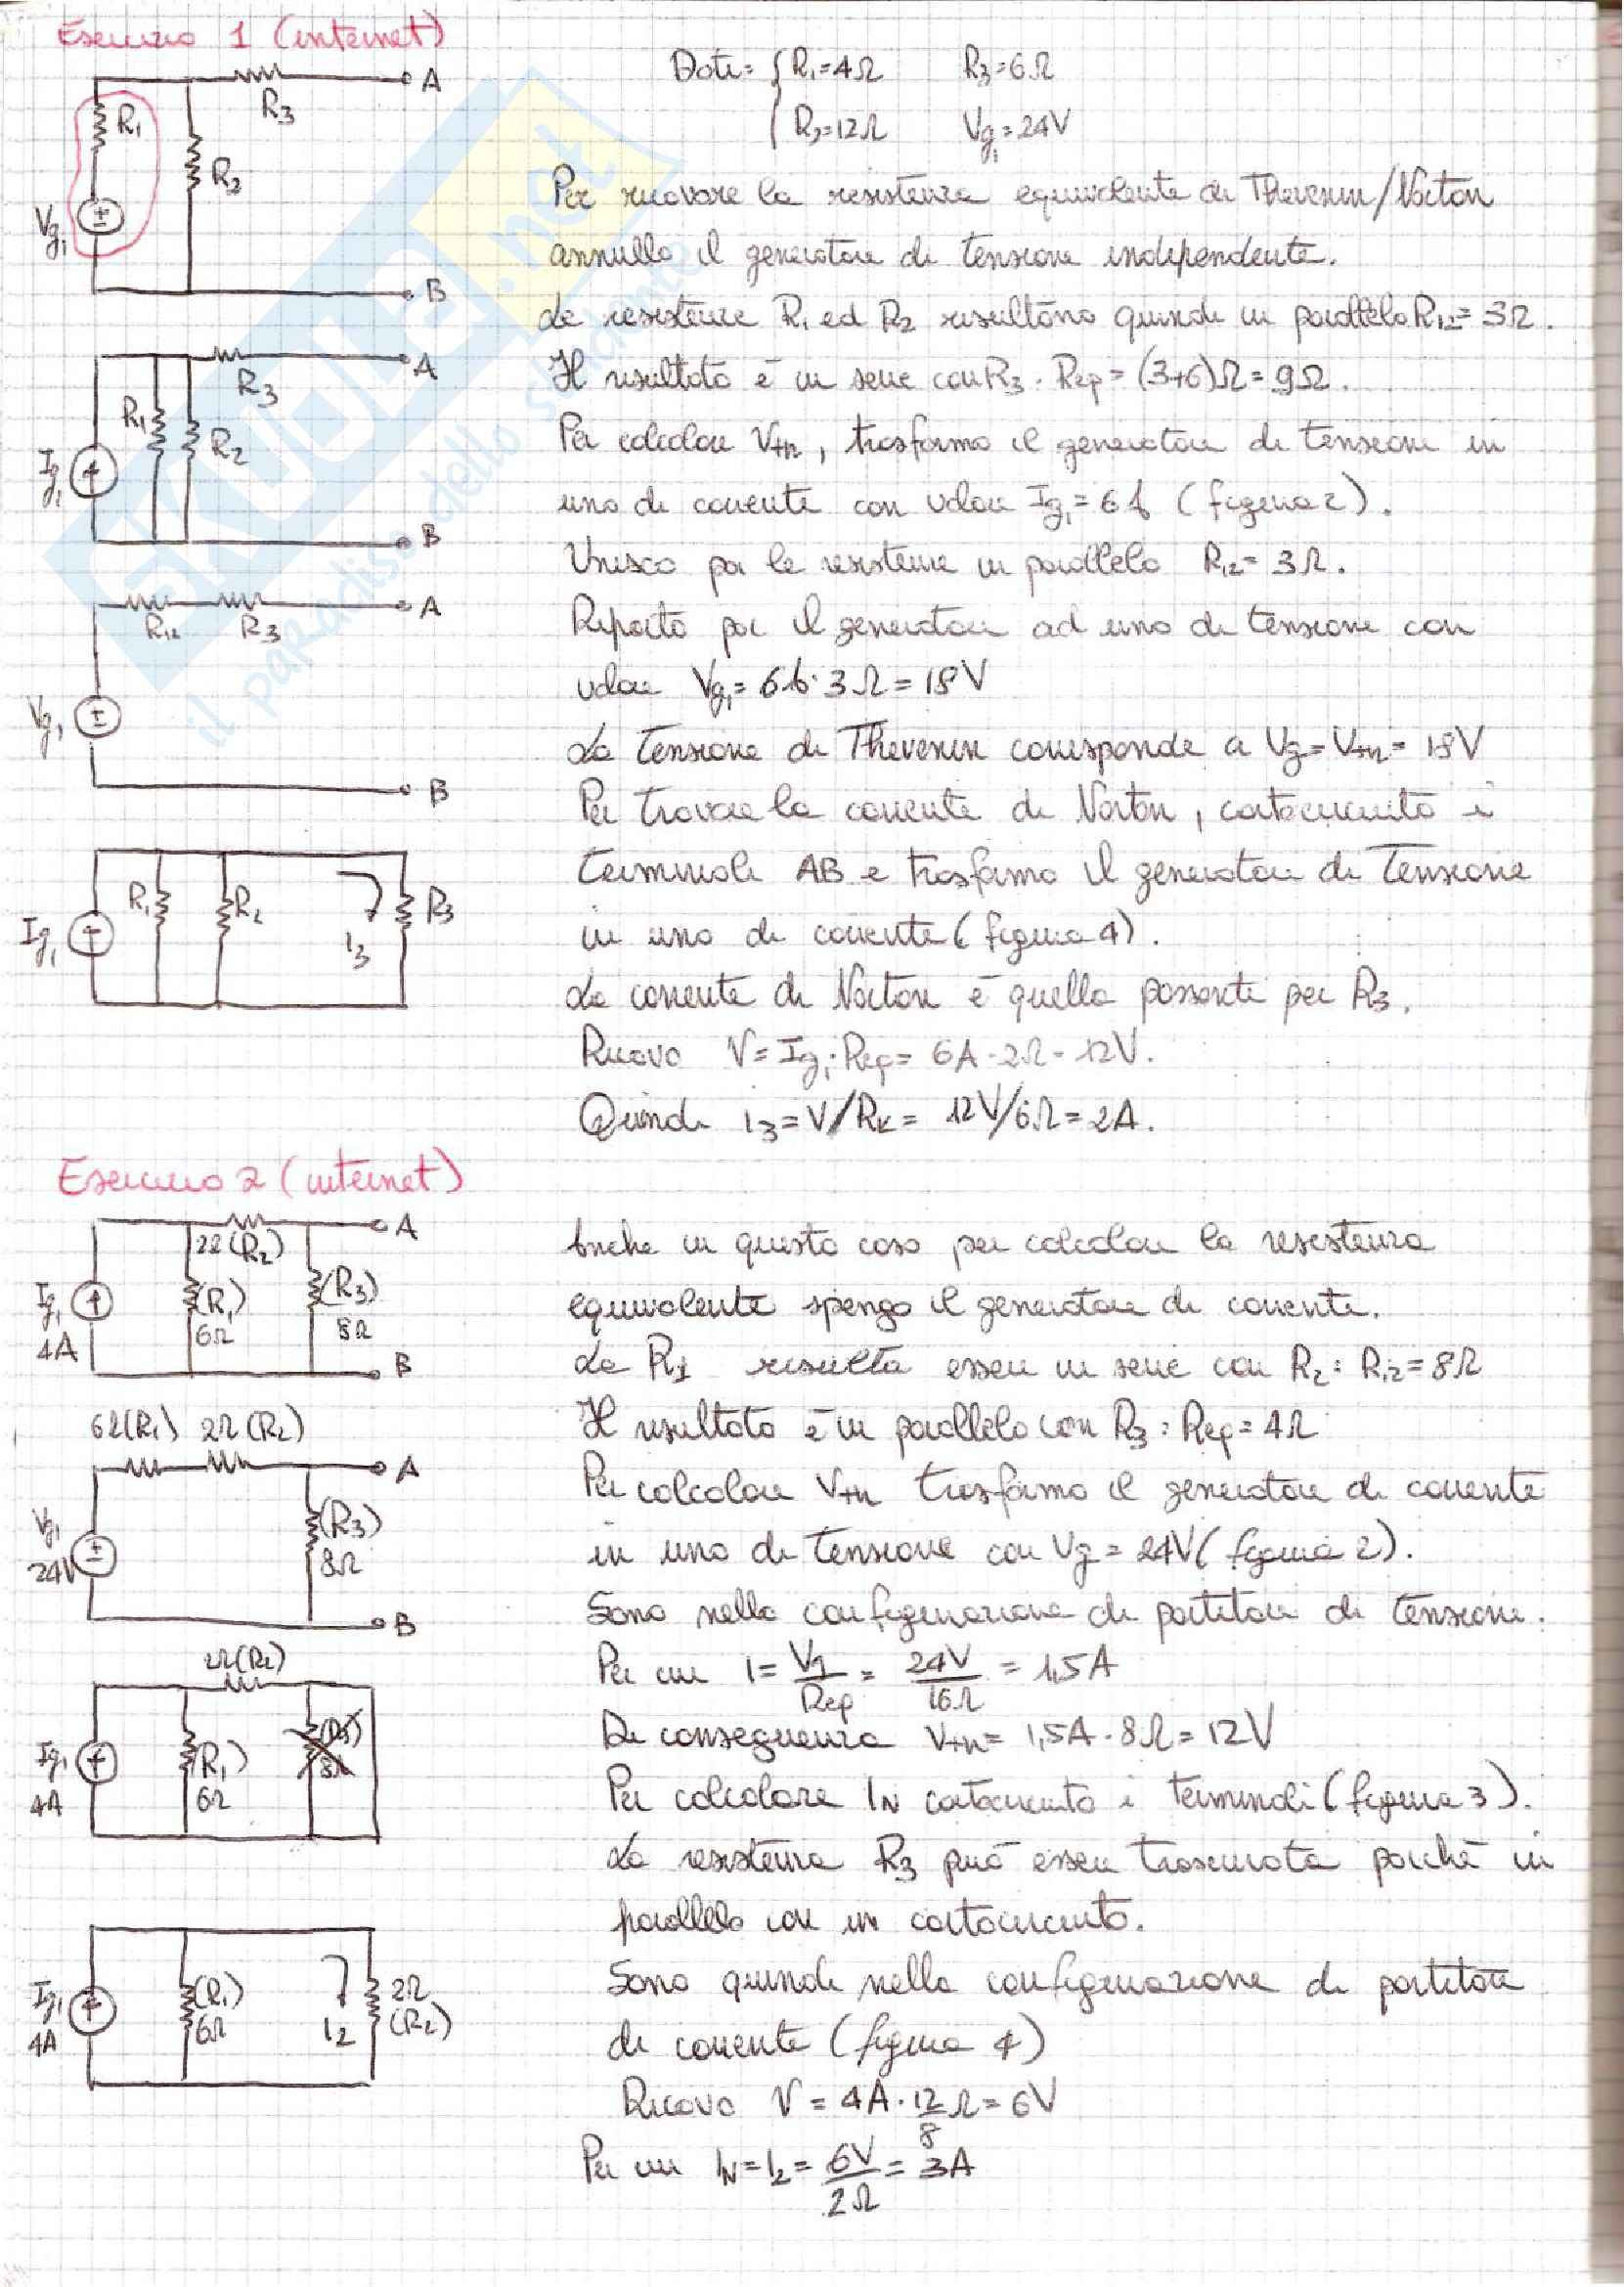 Esercizio 1 (internet)
R3
A
R1
R2
Vg1
B
Dati: R1=4Ω R3=6Ω
R2=12Ω Vg1=24V
Per ricavare la resistenza equivalente di Thevenin/Norton
annullo il generatore di tensione indipendente.
Le resistenze R1 ed R2 risultano quindi in parallelo R12=3Ω.
Il risultato è in serie con R3. Req=(3+6)Ω=9Ω.
Per calcolare Vth, trasformo il generatore di tensione in
uno di corrente con valore Ig1=6A (figura 2).
Unisco poi le resistenze in parallelo R12=3Ω.
Riporto poi il generatore ad uno di tensione con
valore Vg1=6A·3Ω=18V
La tensione di Thevenin corrisponde a Vg=Vth=18V
Per trovare la corrente di Norton, cortocircuito i
terminali AB e trasformo il generatore di tensione
in uno di corrente (figura 4).
La corrente di Norton è quella passante per R3.
Ricavo V=Ig1·Req=6A·2Ω=12V.
Quindi i3=V/RK=12V/6Ω=2A.
A
R3
R1
R2
Ig1
B
R12 R3
A
Vg1
B
Ig1
R1
R2
i3
R3
Esercizio 2 (internet)
A
2Ω(R2)
Ig1
4A
(R1)
6Ω
(R3)
8Ω
B
Anche in questo caso per calcolare la resistenza
equivalente spengo il generatore di corrente.
La R1 risulta essere in serie con R2: R12=8Ω
Il risultato è in parallelo con R3: Req=4Ω
Per calcolare Vth trasformo il generatore di corrente
in uno di tensione con Vg=24V (figura 2).
Sono nella configurazione di partitore di tensione.
Per cui I=V1/Req=24V/16Ω=1,5A
Di conseguenza Vth=1,5A·8Ω=12V
Per calcolare IN cortocircuito i terminali (figura 3).
La resistenza R3 può essere trascurata poichè in
parallelo con un cortocircuito.
Sono quindi nella configurazione di partitore
di corrente (figura 4)
Ricavo V=4A·12/8Ω=6V
Per cui IN=I2=6V/2Ω=3A
6Ω(R1) 2Ω(R2)
A
Vg1
24V
(R3)
8Ω
B
2Ω(R2)
Ig1
4A
(R1)
6Ω
(R3)
8Ω
Ig1
4A
(R1)
6Ω
I2
2Ω
(R2)
SKUOLA.net
il paradiso dello studente